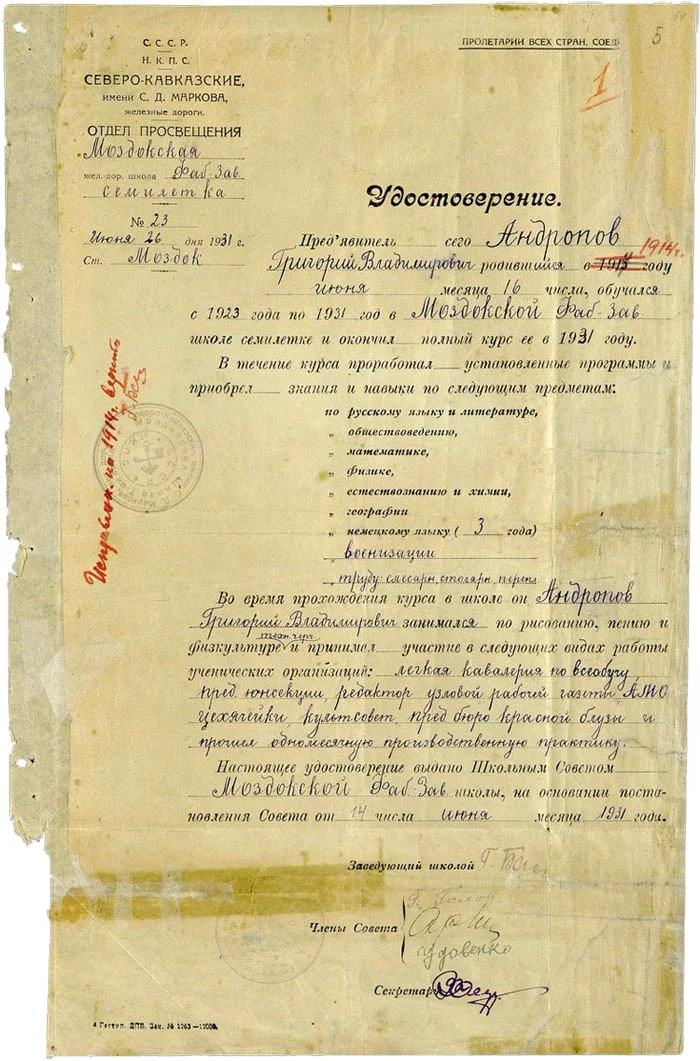 64
5
1
С. С. С. Р.
Н. К. П. С.
СЕВЕРО-КАВКАЗСКИЕ,
имени С. Д. МАРКОВА,
железные дороги.
ОТДЕЛ ПРОСВЕЩЕНИЯ
Моздокская
жел.-дор. школа Фаб-Зав.
семилетка
№ 23
Июня 26 дня 1931 г.
Ст. Моздок
ПРОЛЕТАРИИ ВСЕХ СТРАН, СОЕД
Удостоверение.
Пред'явитель сего Андропов 1914 г.
Григорий Владимирович родившийся в 1917 году
июня месяца 16 числа, обучался
с 1923 года по 1931 год в Моздокской Фаб-Зав.
школе семилетке и окончил полный курс ее в 1931 году.
В течение курса проработал установленные программы и
приобрел знания и навыки по следующим предметам:
по русскому языку и литературе,
„ обществоведению,
„ математике,
„ физике,
„ естествознанию и химии,
„ географии
„ немецкому языку ( 3 года)
„ военизации
„ труду: слесарн, столярн, перепл
Исправлен. на 1914 г. верить
Во время прохождения курса в школе он Андропов
Григорий Владимирович занимался по рисованию, пению и
физкультуре и принимал участие в следующих видах работы
ученических организаций: легкая кавалерия по всеобучу,
пред. юнсекции, редактор узловой рабочей газеты,
цехячейки, культсовет, пред бюро красной блузы и
прошел одномесячную производственную практику.
Настоящее удостоверение выдано Школьным Советом
Моздокской Фаб-Зав школы, на основании поста-
новления Совета от 14 числа июня месяца 1931 года.
Заведующий школой
Члены Совета
Удовенко
Секретарь
4 Гостип. ДПВ. Зак. № 1263—12000.